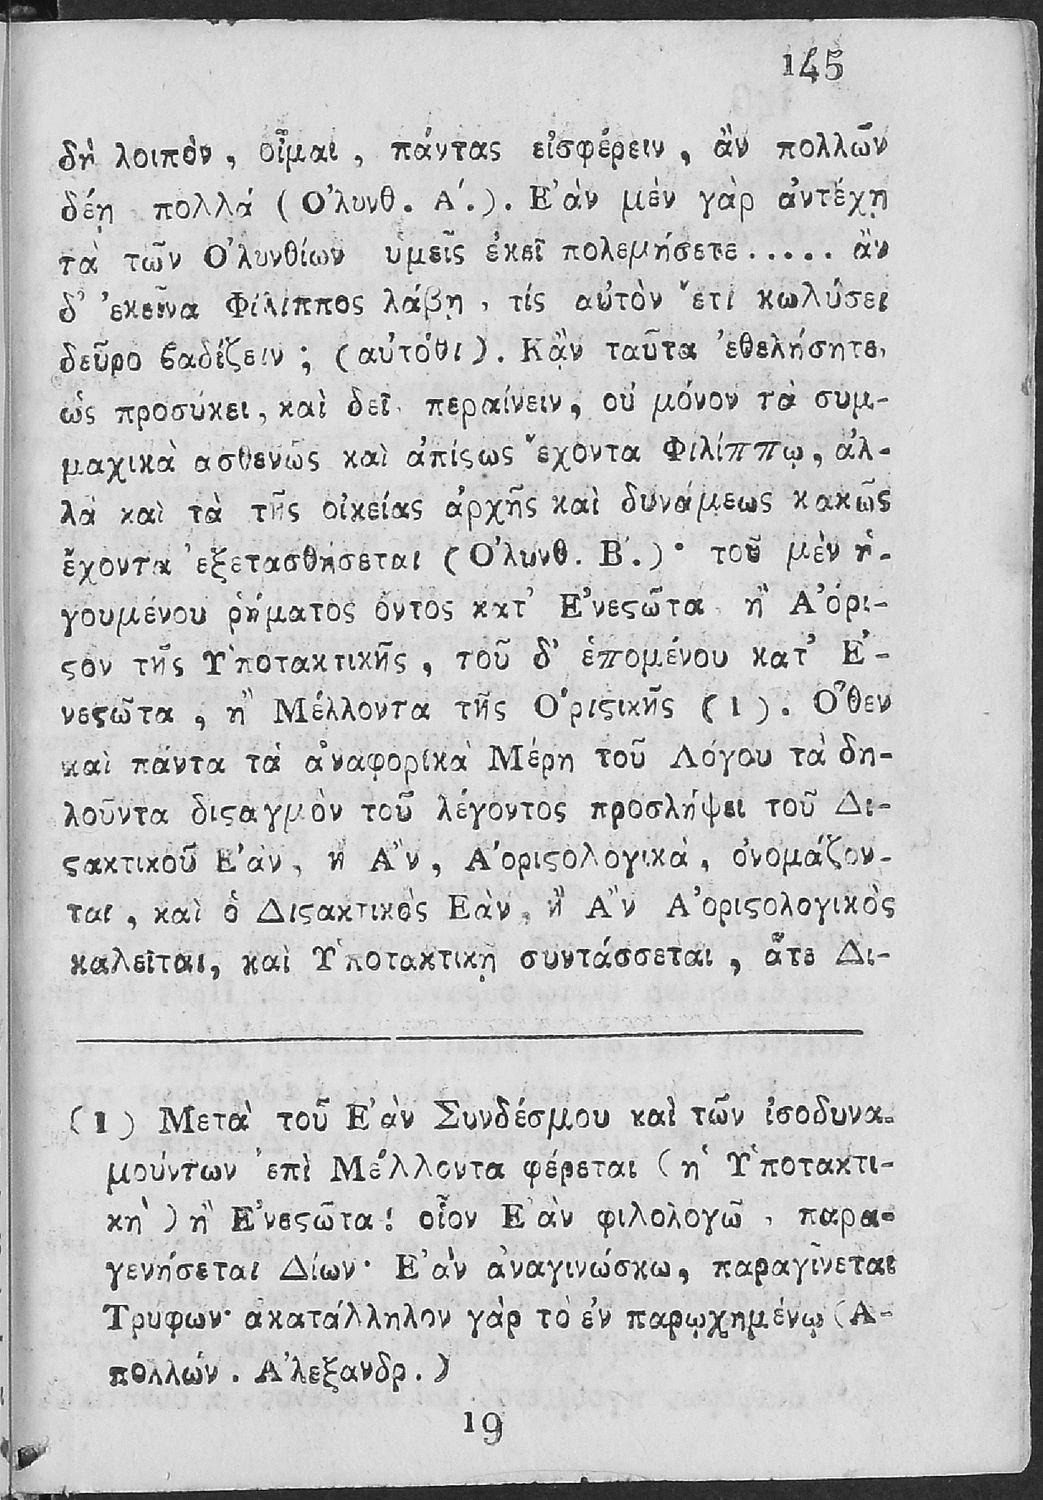 145
δὴ λοιπὸν, οἶμαι, πάντας εἰσφέρειν, ἂν πολλῶν
δέῃ πολλά (Ὀλυνθ. Α΄.). Ἐὰν μὲν γὰρ ἀντέχῃ
τὰ τῶν Ὀλυνθίων ὑμεῖς ἐκεῖ πολεμήσετε..... ἂν
δ' ἐκεῖνα Φίλιππος λάβῃ, τίς αὐτὸν ἔτι κωλύσει
δεῦρο ϐαδίζειν; (αὐτόθι). Κᾂν ταῦτα ἐθελήσητε,
ὡς προσύκει, καὶ δεῖ περαίνειν, οὐ μόνον τὰ συμ-
μαχικὰ ασθενῶς καὶ ἀπίϛως ἔχοντα Φιλίππῳ, ἀλ-
λὰ καὶ τὰ τῆς οἰκείας ἀρχῆς καὶ δυνάμεως κακῶς
ἔχοντα ἐξετασθήσεται (Ὀλυνθ. Β΄.)· τοῦ μὲν ἡ-
γουμένου ῥήματος ὄντος κατ' Ἐνεϛῶτα ἢ Ἀόρι-
ϛον τῆς Ὑποτακτικῆς, τοῦ δ' ἑπομένου κατ' Ἐ-
νεϛῶτα, ἢ Μέλλοντα τῆς Ὁριϛικῆς (1). Ὅθεν
καὶ πάντα τὰ ἀναφορικὰ Μέρη τοῦ Λόγου τὰ δη-
λοῦντα διϛαγμὸν τοῦ λέγοντος προσλήψει τοῦ Δι-
ϛακτικοῦ Ἐὰν, ἢ Ἂν, Ἀοριϛολογικὰ, ὀνομάζον-
ται, καὶ ὁ Διϛακτικὸς Εὰν, ἢ Ἂν Ἀοριϛολογικὸς
καλεῖται, καὶ Ὑποτακτικῇ συντάσσεται, ἅτε Δι-
(1) Μετὰ τοῦ Ἐὰν Συνδέσμου καὶ τῶν ἰσοδυνα-
μούντων ἐπὶ Μέλλοντα φέρεται (ἡ Ὑποτακτι-
κὴ) ἢ Ἐνεϛῶτα! οἷον Ἐὰν φιλολογῶ, παρα-
γενήσεται Δίων· Ἐὰν ἀναγινώσκω, παραγίνεται
Τρυφων· ακατάλληλον γὰρ τὸ ἐν παρῳχημένῳ (Ἀ-
πολλών. Ἀλεξανδρ.)
19